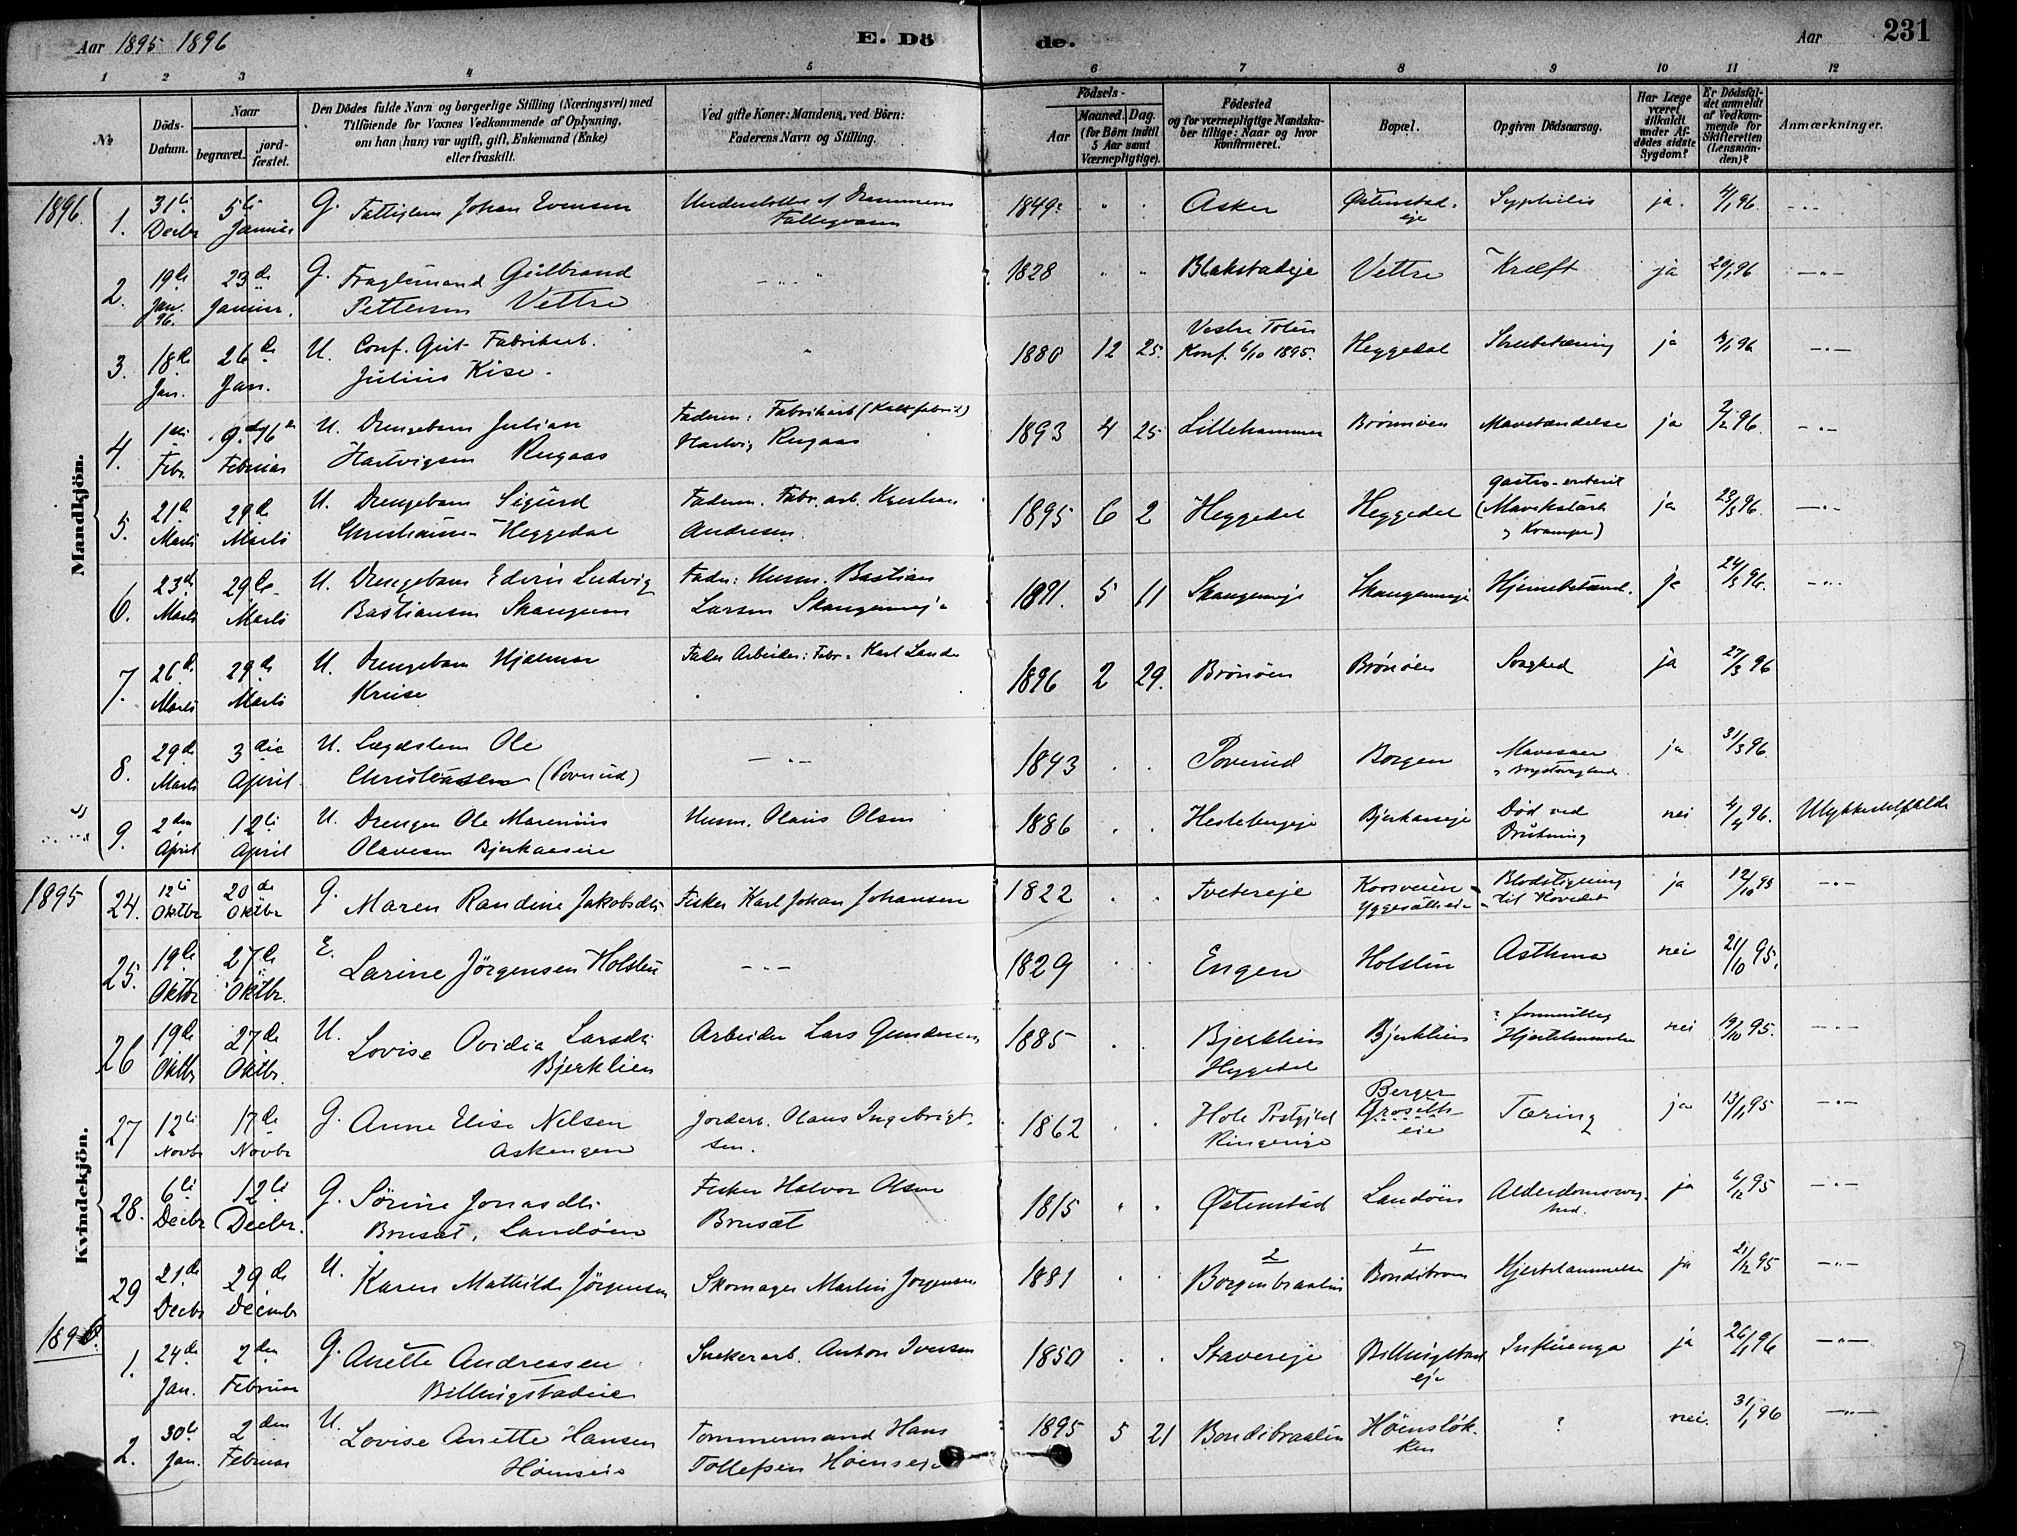 Aar 1895 1896 E. Dö de. Aar 231
1 2 3 4 5 6 7 8 9 10 11 12
No
Döds-
Datum.
Naar
begravet.
jord-
fæstet.
Den Dödes fulde Navn og borgerlige Stilling (Næringsvei) med
Tilföiende for Voxnes Vedkommende af Oplysning,
om han (hun) var ugift, gift, Enkemand (Enke)
eller fraskilt.
Ved gifte Koner: Mandens, ved Börn:
Faderens Navn og Stilling.
Födsels-
Aar
Maaned. Dag.
(for Börn indtil
5 Aar samt
Værnepligtige).
Födested
og for værnepligtige Mandska-
ber tillige: Naar og hvor
konfirmeret.
Bopæl.
Opgiven Dödsaarsag.
Har Læge
været
tilkaldt
under Af-
dödes sidste
Sygdom?
Er Dödsfal-
det anmeldt
af Vedkom-
mende for
Skifteretten
(Lensman-
den)?
Anmærkninger.
Mandkjön.
1896.
1. 31te 5te G. Fattiglem Johan Evensen Understøttes af Drammens 1849 " " Asker Østenstad- Syphilis ja. 4/1 96. -"-
Decbr Januar Fattigvæsen eje
2. 19de 23de G. Gulbrand -"- 1828 " " Blakstadeje Vettre Kræft ja 20/1 96 -"-
Jan. 96. Januar. Pettersen Vettre
3. 18de 26de U. Conf. Gut. Fabrikarb. " 1880 12 25. Vestre Toten Heggedal Strubetæring ja /1 96 -"-
Jan. Jan. Julius Kise. Konf. 6/10 1895.
4. 1ste 9de 16de U. Drengebarn Julian Faderen: Fabrikarb (Kalkfabrik) 1893 4 25 Lillehammer Brønnøen Mavetændelse ja 2/2 96. -"-
Febr. Februar Hartvigsen Rugaas Hartvig Rugaas
5. 21de 29de U. Drengebarn Sigurd Faderen. Fabr. arb. Kristian 1895 6 2 Heggedal Heggedal gastro-enterit ja 23/3 96. -"-
Marts Marts Christiansen Heggedal Andresen. (Mavekatarh
og Kramper)
6. 23de 29de U. Drengebarn Edvin Ludvig Fader: Husm. Bastian 1891. 5 11 Skaugumeje Skaugumeje Hjernebetænd. ja 24/3 96. -"-
Marts Marts Bastiansen Skaugum Larsen Skaugumeje
7. 26de 29de U. Drengebarn Hjalmar Fader Arbeider: Fabr. Karl Lande 1896 2 29. Brønøen Brønøen Svaghed ja 27/3 96
Marts Marts Kruse
8. 29de 3die U. Lægdslem Ole -"- 1843 " " Poverud Borgen Mavesaar ja 31/3 96.
Marts April Christiansen (Poverud)
9. 2den 12te U. Drengen Ole Marenius Husm. Olaus Olsen 1886 " " Hestebergeje Bjerkaaseje Død ved nei 4/4 96. Ulykkestilfælde
April April Olavesen Bjerkaaseie Drukning
Kvindekjön.
1895
24. 12te 20de G. Maren Randine Jakobsdtr. Fisker Karl Johan Johansen 1822 " " Tvetereje Korsveien Blodstigning ja 12/10 95 -"-
Oktbr Oktbr til Hovedet
25. 19de 27de E. Larine Jørgensen Holstin -"- 1829 " " Engen Holstin Asthma nei 21/10 95. -"-
Oktbr Oktbr.
26 19de 27de U. Lovise Ovidia Larsdtr. Arbeider Lars Gundersen 1885 " " Bjerklien Bjerklien ? formentlig nei 19/10 95. -"-
Oktbr Oktbr. Bjerklien Heggedal Hjertelammelse
27 12te 17de G. Anne Elise Nilsen Jorderb. Olaus Ingebrigt- 1862 " " Hole Prstgjeld Berger Tæring ja 13/11 95 -"-
Novbr Novbr Askengen sen. Ringerige eie
28. 6te 12te G. Sørine Jonasdtr. Fisker Halvor Olsen 1815 " " Østenstad Landøen Alderdomssvag- ja 6/12 95 -"-
Decbr Decbr. Brusæt, Landøen Brusæt hed.
29 21de 29de U. Karen Mathilde Jørgensen Skomager Martin Jørgensen 1881 " " 2 Borgenbraaten 1 Bondibroen Hjertelammelse ja 21/12 95 -"-
Decbr Decembr
1896.
1. 24de 2den G. Anette Andreasen Snekerarb. Anton Iversen 1850 " " Stavereje Billingstad Influenza ja 26/1 96 -"-
Jan. Februar Billingstadeie eje
2. 30te 2den U. Lovise Anette Hansen Tommermand Hans 1895 5 21 Bondibraaten Hønsløk- ? nei. 31/1 96 -"-
Jan. Februar Hønseie Tollefsen Hønseje ken